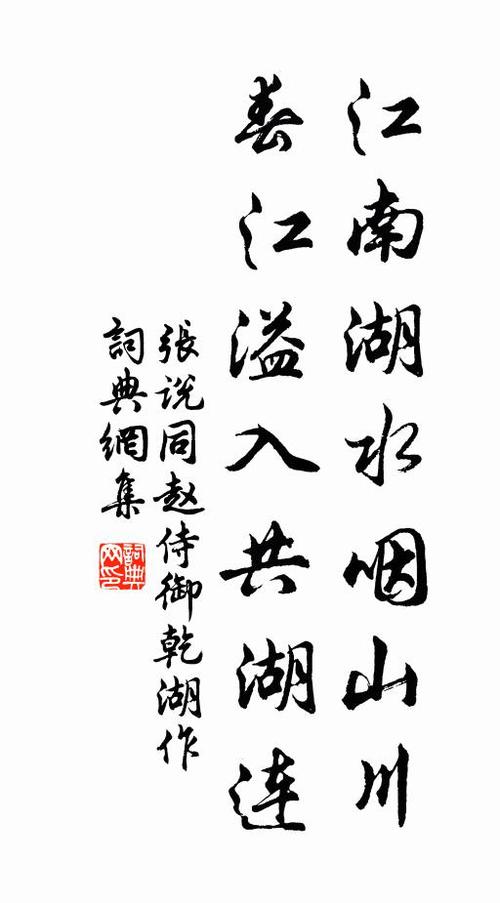 江南湖水咽山川
春江溢入共湖連
張说同赵侍御乾湖作
詞典網集
詞典
网印